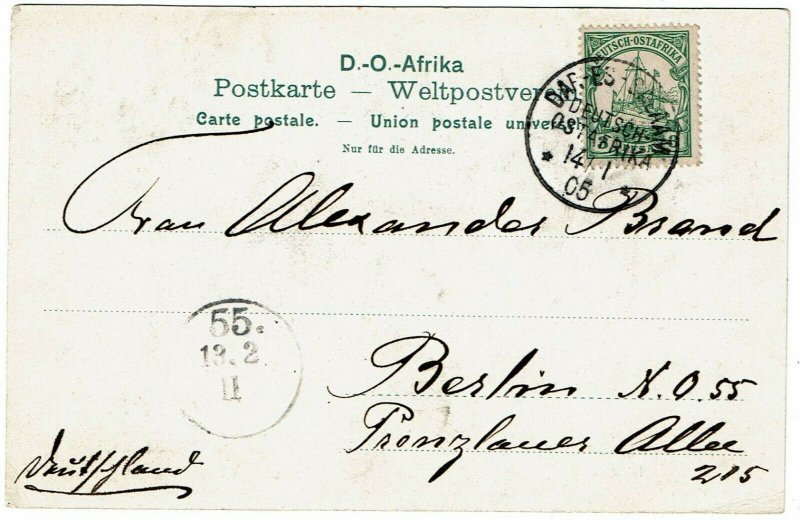 D.-O.-Afrika
Postkarte — Weltpostverein
Carte postale. — Union postale universelle.
Nur für die Adresse.
DEUTSCH-OSTAFRIKA
DAR-ES-SALAAM
DEUTSCH-
OSTAFRIKA
14/1
05
Frau Alexander Brand
55.
13.2
II
Berlin N.O.55
Prenzlauer Allee
215
Deutschland